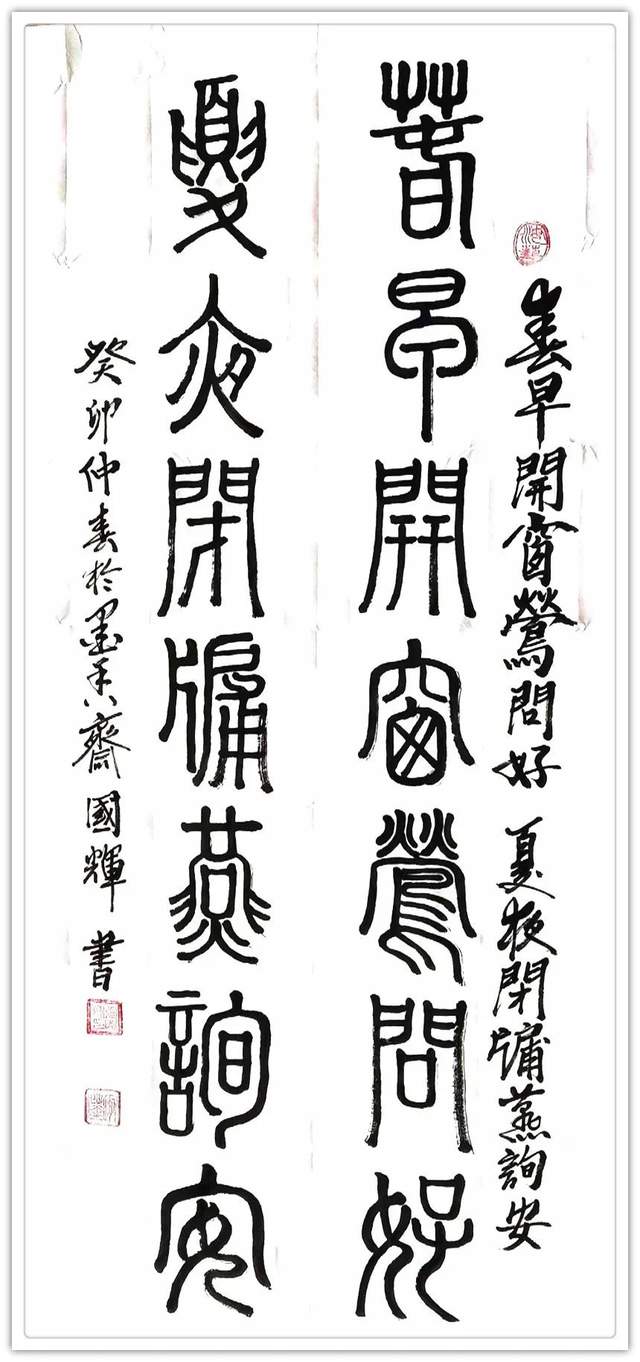 春早開窗鶯問好 夏夜閉牗燕詢安
春早開窗鶯問好
夏夜閉牗燕詢安
癸卯仲春於墨香齋國輝書